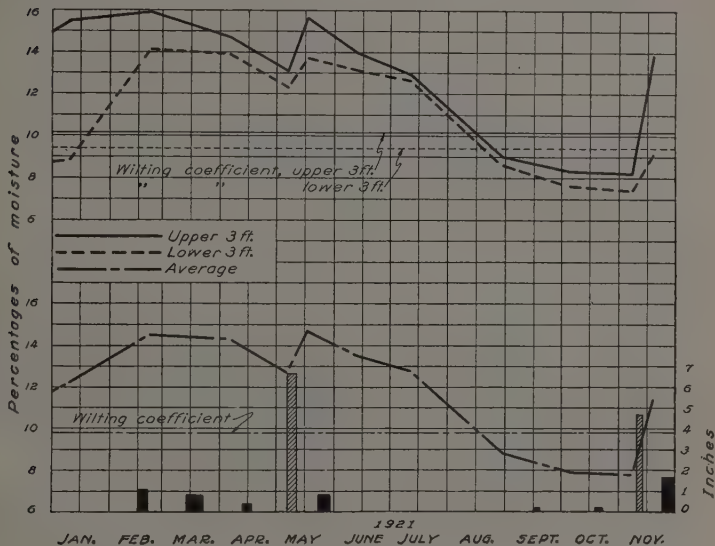 16
14
12
10
8
6
Wilting coefficient, upper 3ft.
" " lower 3ft.
Upper 3 ft.
Lower 3 ft.
Average
16
14
12
10
8
6
Percentages of moisture
Wilting coefficient
7
6
5
4
3
2
1
0
Inches
1921
JAN. FEB. MAR. APR. MAY JUNE JULY AUG. SEPT. OCT. NOV.